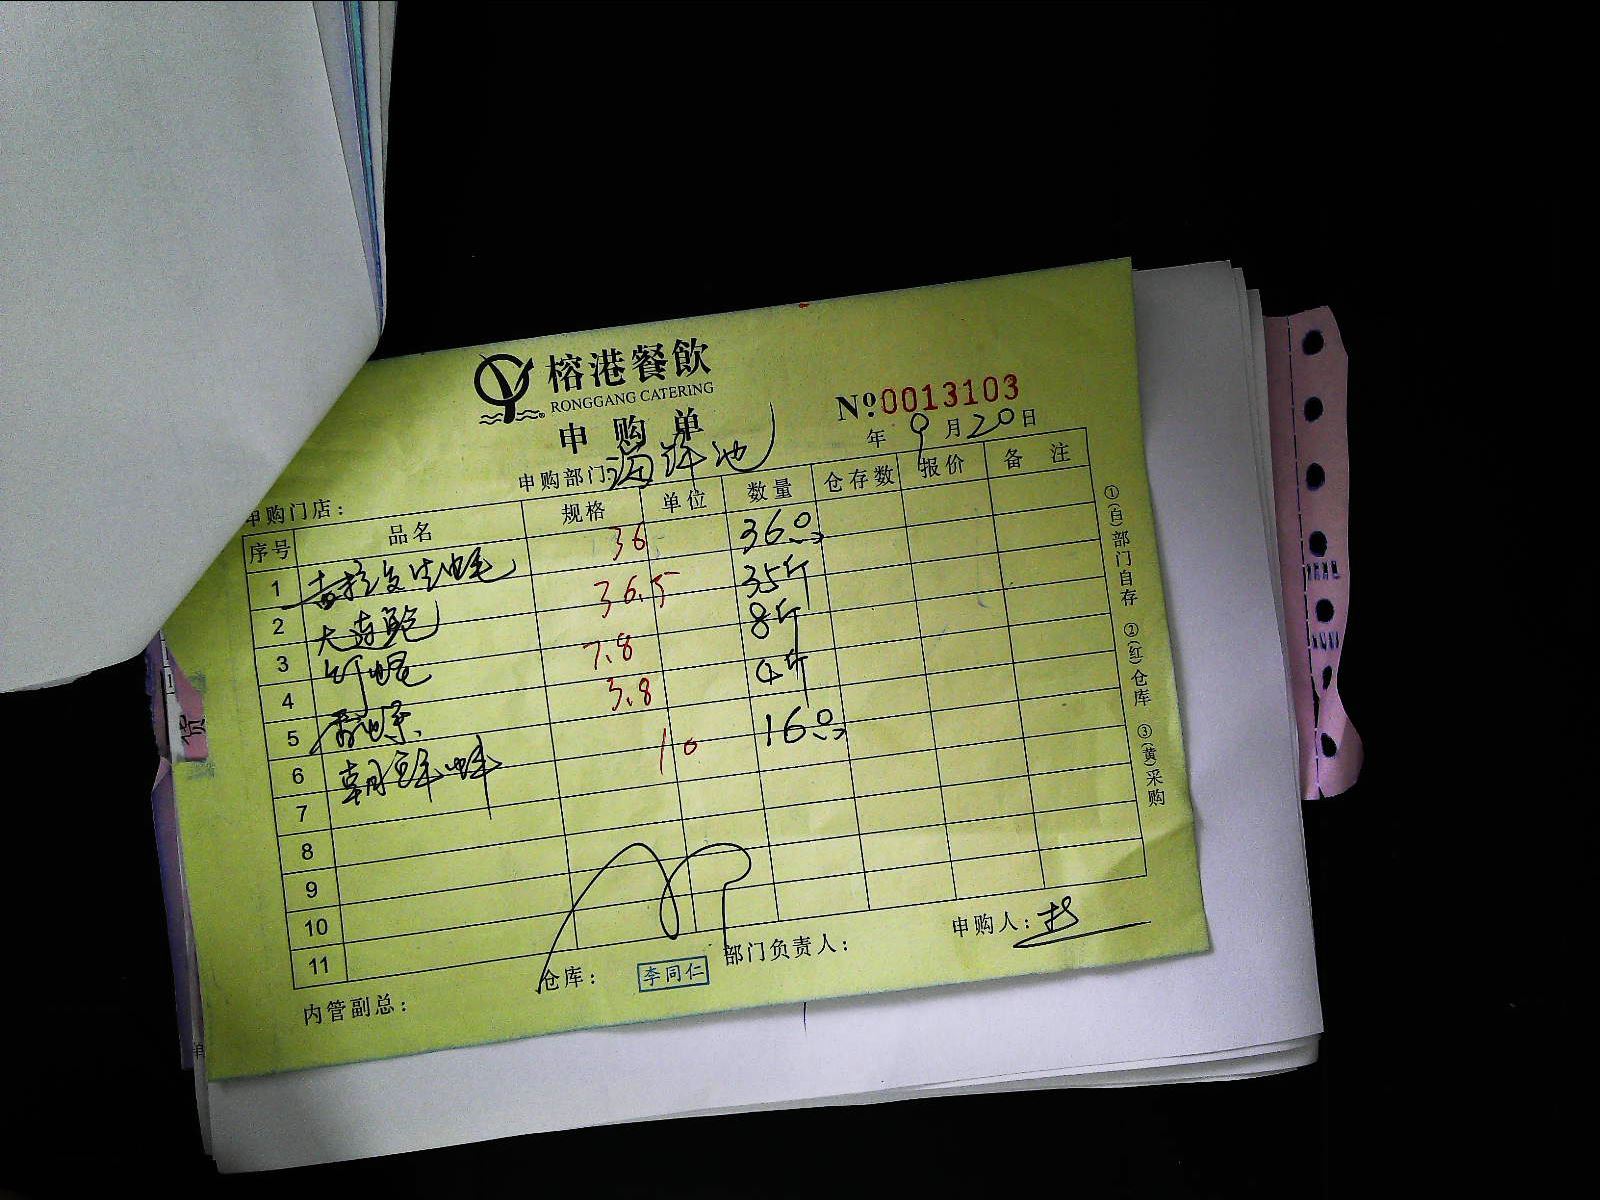 榕港餐飲
RONGGANG CATERING
申购单
No.0013103
年 9 月 20 日
申购部门: 海鲜池
申购门店:
序号 品名 规格 单位 数量 仓存数 报价 备注
1 吉拉多生蚝 36 36只
2 大连鲍 36.5 35斤
3 竹蛏 7.8 8斤
4 3.8 4斤
5 朝鲜蚌 10 16只
6
7
8
9
10
11
①(白)部门自存 ②(红)仓库 ③(黄)采购
内管副总: 仓库: 李同仁 部门负责人: 申购人: